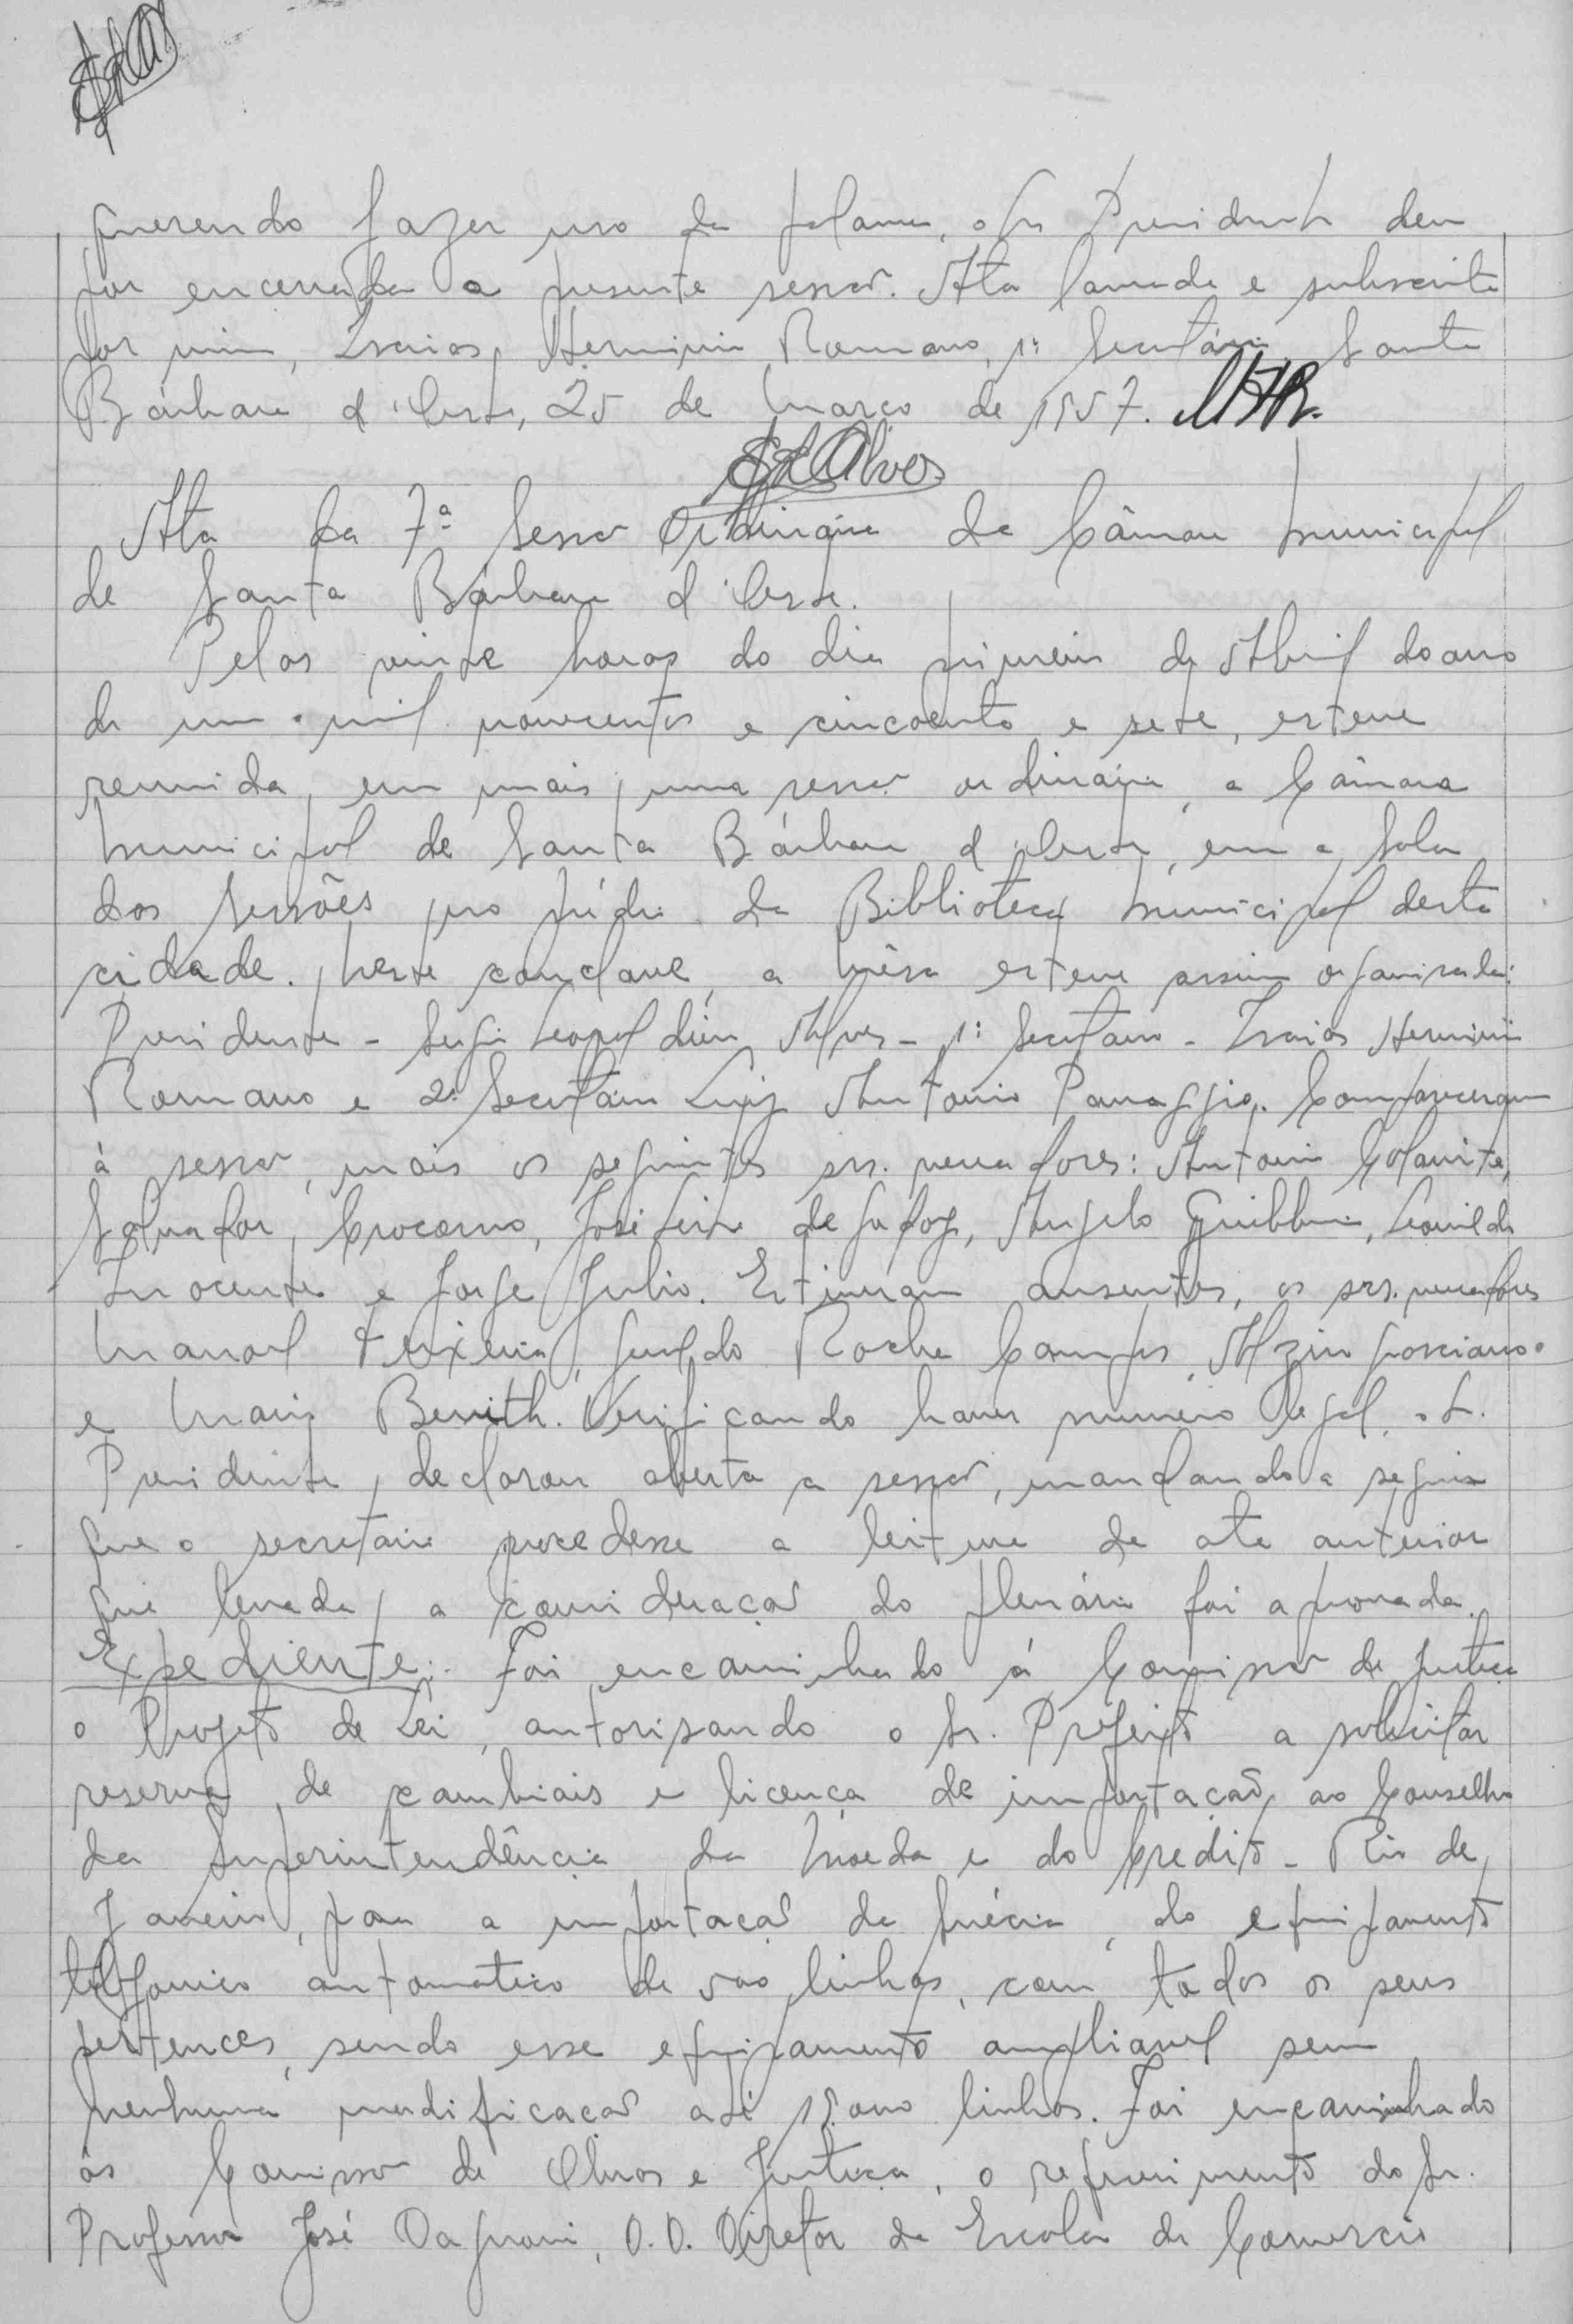 querendo fazer uso da palavra, o Sr. Presidente deu
por encerrada a presente sessão. Ata lavrada e subscrita
por mim, Isaias Herminio Romano, 1º Secretário. Santa
Bárbara d'Oeste, 25 de Março de 1957. IHR.
Alves
Ata da 7ª Sessão Ordinária da Câmara Municipal
de Santa Bárbara d'Oeste.
Pelas vinte horas do dia primeiro de Abril do ano
de um mil novecentos e cincoenta e sete, esteve
reunida, em mais uma sessão ordinária, a Câmara
Municipal de Santa Bárbara d'Oeste, em a Sala
das Sessões no prédio da Biblioteca Municipal desta
cidade. Neste conclave, a mêsa esteve assim organisada:
Presidente - Leopoldino Alves - 1º Secretario - Isaias Herminio
Romano e 2º Secretário Luiz Antonio Panaggio. Compareceram
à sessão, mais os seguintes srs. vereadores: Antonio
Salvador, José Leite de Godoy, Angelo, Leonildo
Inocente e Jorge Julio. Estiveram ausentes, os srs. vereadores
Manoel Teixeira, Geraldo Rocha Campos,
e Mario. Verificando haver numero legal, o Sr.
Presidente, declarou aberta a sessão, mandando a seguir
que o secretario procedesse a leitura da ata anterior
que levada a consideração do plenário foi aprovada.
Expediente:- Foi encaminhado á Comissão de Justiça
o Projeto de Lei, autorisando o Sr. Prefeito a solicitar
reserva de cambiais e licença de importação, ao Conselho
da Superintendência da Moeda e do Credito - Rio de
Janeiro, para a importação da Suécia, do equipamento
telefonico automatico de 500 linhas, com todos os seus
pertences, sendo esse equipamento ampliavel sem
nenhuma modificação até linhas. Foi encaminhado
ás Comissão de Obras e Justiça, o requerimento do Sr.
Professor José Dagnoni, D.D. Diretor da Escola de Comercio